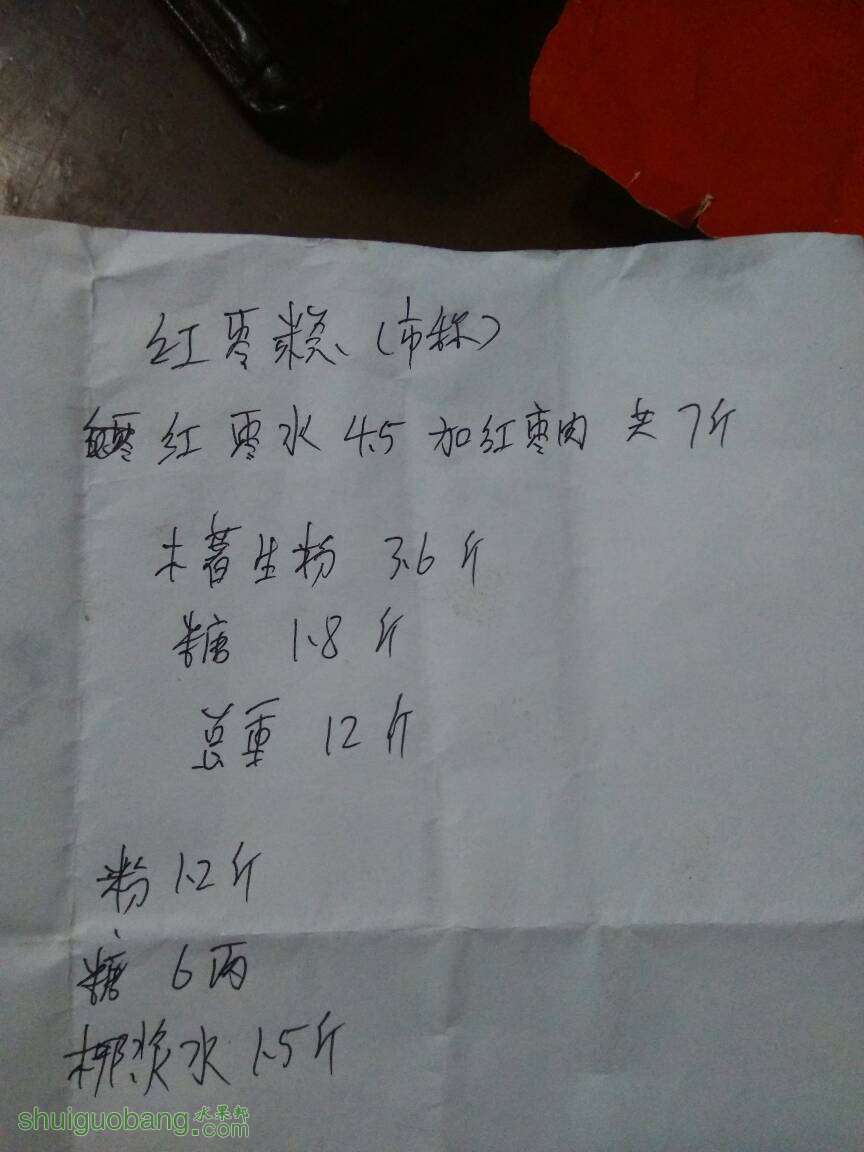 红枣糕（市称）
红枣水 4.5 加红枣肉 共 7斤
木薯生粉 3.6 斤
糖 1.8 斤
总重 12 斤
粉 1.2 斤
糖 6 两
椰浆水 1.5 斤
shuiguobang.com 水果邦